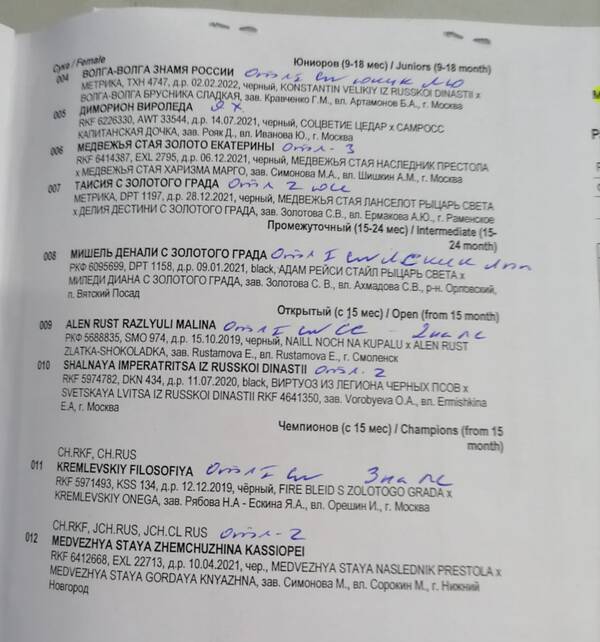 Суки / Female
Юниоров (9-18 мес) / Juniors (9-18 month)
004 ВОЛГА-ВОЛГА ЗНАМЯ РОССИИ
МЕТРИКА, TXH 4747, д.р. 02.02.2022, черный, KONSTANTIN VELIKIY IZ RUSSKOI DINASTII x
ВОЛГА-ВОЛГА БРУСНИКА СЛАДКАЯ, зав. Кравченко Г.М., вл. Артамонов Б.А., г. Москва
005 ДИМОРИОН ВИРОЛЕДА
RKF 6226330, AWT 33544, д.р. 14.07.2021, черный, СОЦВЕТИЕ ЦЕДАР x САМРОСС
КАПИТАНСКАЯ ДОЧКА, зав. Рояк Д., вл. Иванова Ю., г. Москва
006 МЕДВЕЖЬЯ СТАЯ ЗОЛОТО ЕКАТЕРИНЫ Отл-3
RKF 6414387, EXL 2795, д.р. 06.12.2021, черный, МЕДВЕЖЬЯ СТАЯ НАСЛЕДНИК ПРЕСТОЛА
x МЕДВЕЖЬЯ СТАЯ ХАРИЗМА МАРГО, зав. Симонова М.А., вл. Шишкин А.М., г. Москва
007 ТАИСИЯ С ЗОЛОТОГО ГРАДА Отл 2 юсс
МЕТРИКА, DPT 1197, д.р. 28.12.2021, черный, МЕДВЕЖЬЯ СТАЯ ЛАНСЕЛОТ РЫЦАРЬ СВЕТА
x ДЕЛИЯ ДЕСТИНИ С ЗОЛОТОГО ГРАДА, зав. Золотова С.В., вл. Ермакова А.Ю., г. Раменское
Промежуточный (15-24 мес) / Intermediate (15-
24 month)
008 МИШЕЛЬ ДЕНАЛИ С ЗОЛОТОГО ГРАДА Отл I
РКФ 6095699, DPT 1158, д.р. 09.01.2021, black, АДАМ РЕЙСИ СТАЙЛ РЫЦАРЬ СВЕТА x
МИЛЕДИ ДИАНА С ЗОЛОТОГО ГРАДА, зав. Золотова С. В., вл. Ахмадова С.В., р-н. Орловский,
п. Вятский Посад
Открытый (с 15 мес) / Open (from 15 month)
009 ALEN RUST RAZLYULI MALINA Отл I CW СС - 2 на ЛС
РКФ 5688835, SMO 974, д.р. 15.10.2019, черный, NAILL NOCH NA KUPALU x ALEN RUST
ZLATKA-SHOKOLADKA, зав. Rustamova E., вл. Rustamova E., г. Смоленск
010 SHALNAYA IMPERATRITSA IZ RUSSKOI DINASTII Отл-2
RKF 5974782, DKN 434, д.р. 11.07.2020, black, ВИРТУОЗ ИЗ ЛЕГИОНА ЧЕРНЫХ ПСОВ x
SVETSKAYA LVITSA IZ RUSSKOI DINASTII RKF 4641350, зав. Vorobyeva O.A., вл. Ermishkina
E.A, г. Москва
Чемпионов (с 15 мес) / Champions (from 15
month)
CH.RKF, CH.RUS
011 KREMLEVSKIY FILOSOFIYA Отл I CW 3 на ЛС
RKF 5971493, KSS 134, д.р. 12.12.2019, чёрный, FIRE BLEID S ZOLOTOGO GRADA x
KREMLEVSKIY ONEGA, зав. Рябова Н.А - Ескина Я.А., вл. Орешин И., г. Москва
CH.RKF, JCH.RUS, JCH.CL RUS Отл-2
012 MEDVEZHYA STAYA ZHEMCHUZHINA KASSIOPEI
RKF 6412668, EXL 22713, д.р. 10.04.2021, чер., MEDVEZHYA STAYA NASLEDNIK PRESTOLA x
MEDVEZHYA STAYA GORDAYA KNYAZHNA, зав. Симонова М., вл. Сорокин М., г. Нижний
Новгород